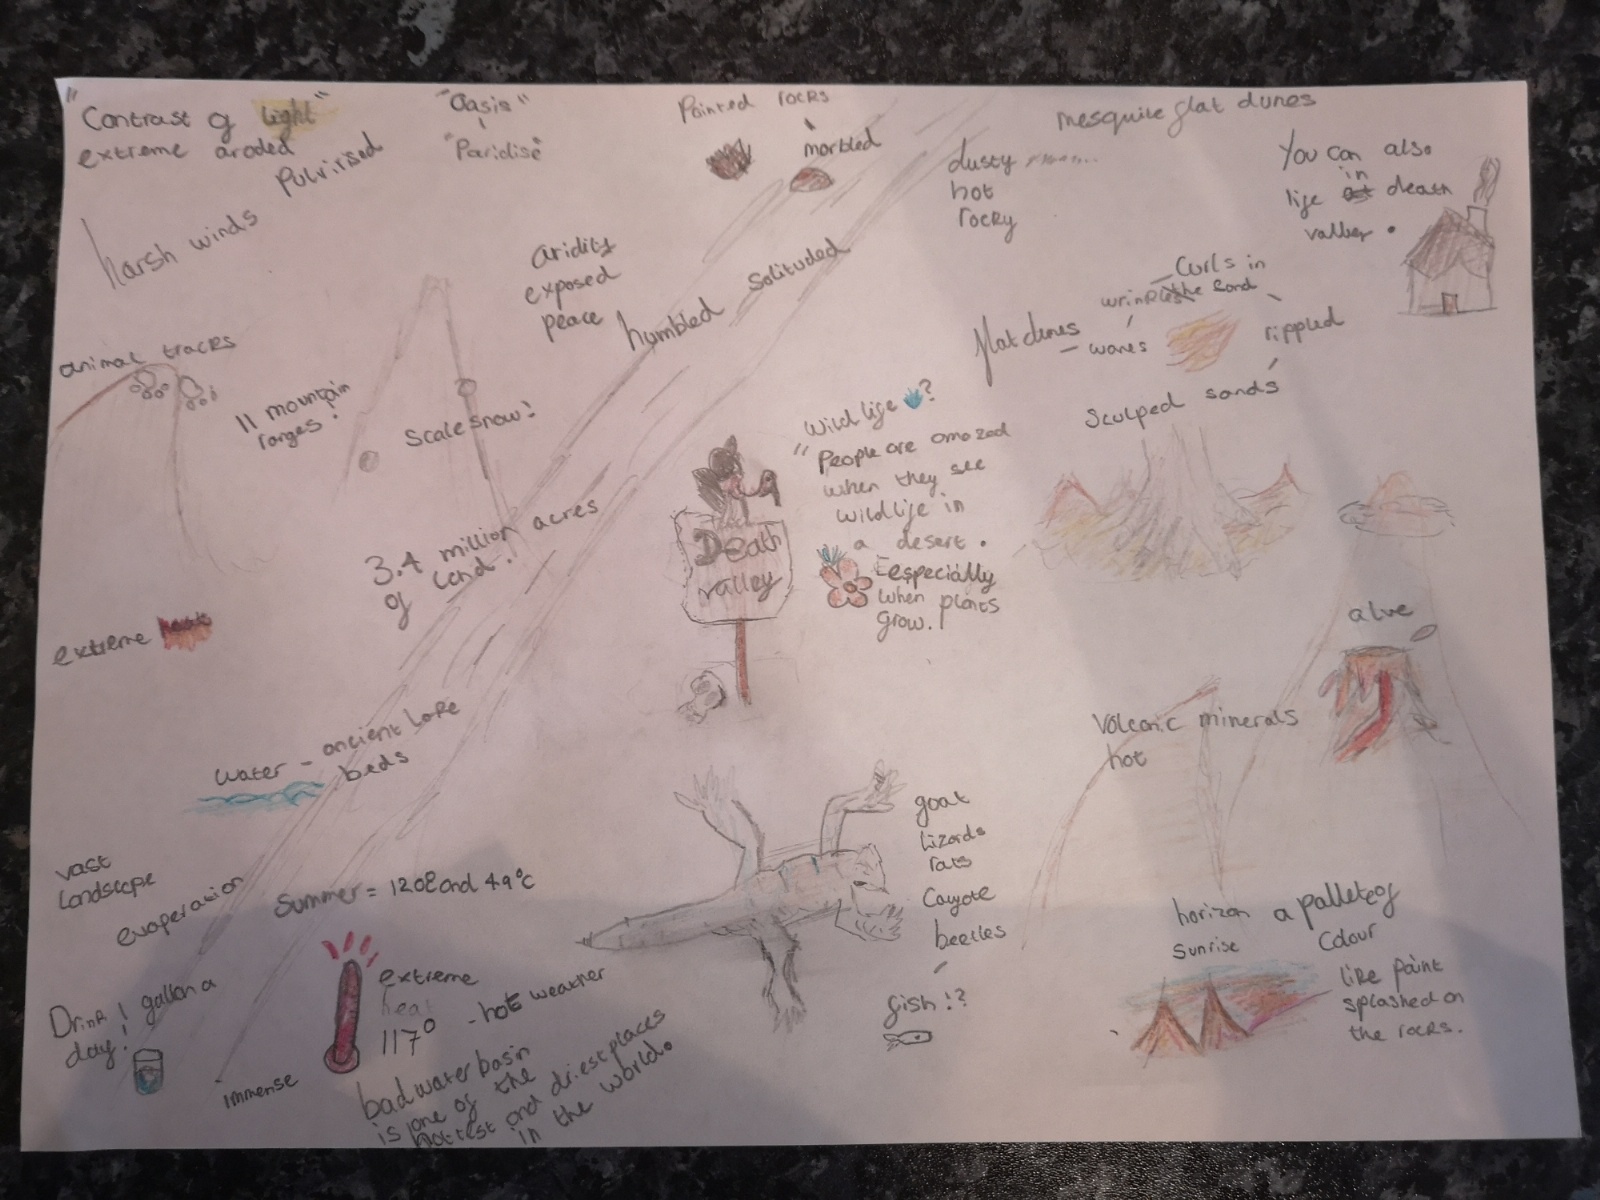 "Contrast of light"
extreme aroded
Pulvirised
harsh winds
"Oasis"
"Paridise"
Painted rocks
marbled
mesquire flat dunes
dusty
hot
rocky
You can also
in
life death
valley.
aridity
exposed
peace
humbled solituded
Curls in
the Sand
wrinkles
flat dunes - waves
rippled
Sculped sands
animal tracks
11 mountain
ranges!
Scale snow!
3.4 million acres
of land.
Wild life ?
"People are amazed
when they see
wildlife in
a desert.
Especially
when plants
grow.
Death
valley
extreme
alive
Volcanic minerals
hot
water - ancient lake
beds
vast
landscape
evaporation
Summer = 120° and 49°C
goat
Lizards
rats
Cayote
beetles
fish!?
horizon a pallete of
Sunrise Colour
like paint
splashed on
the rocks.
Drink 1 gallon a
day!
extreme
heat
117° - hot weather
immense
bad water basin
is one of the
hottest and driest places
in the world.